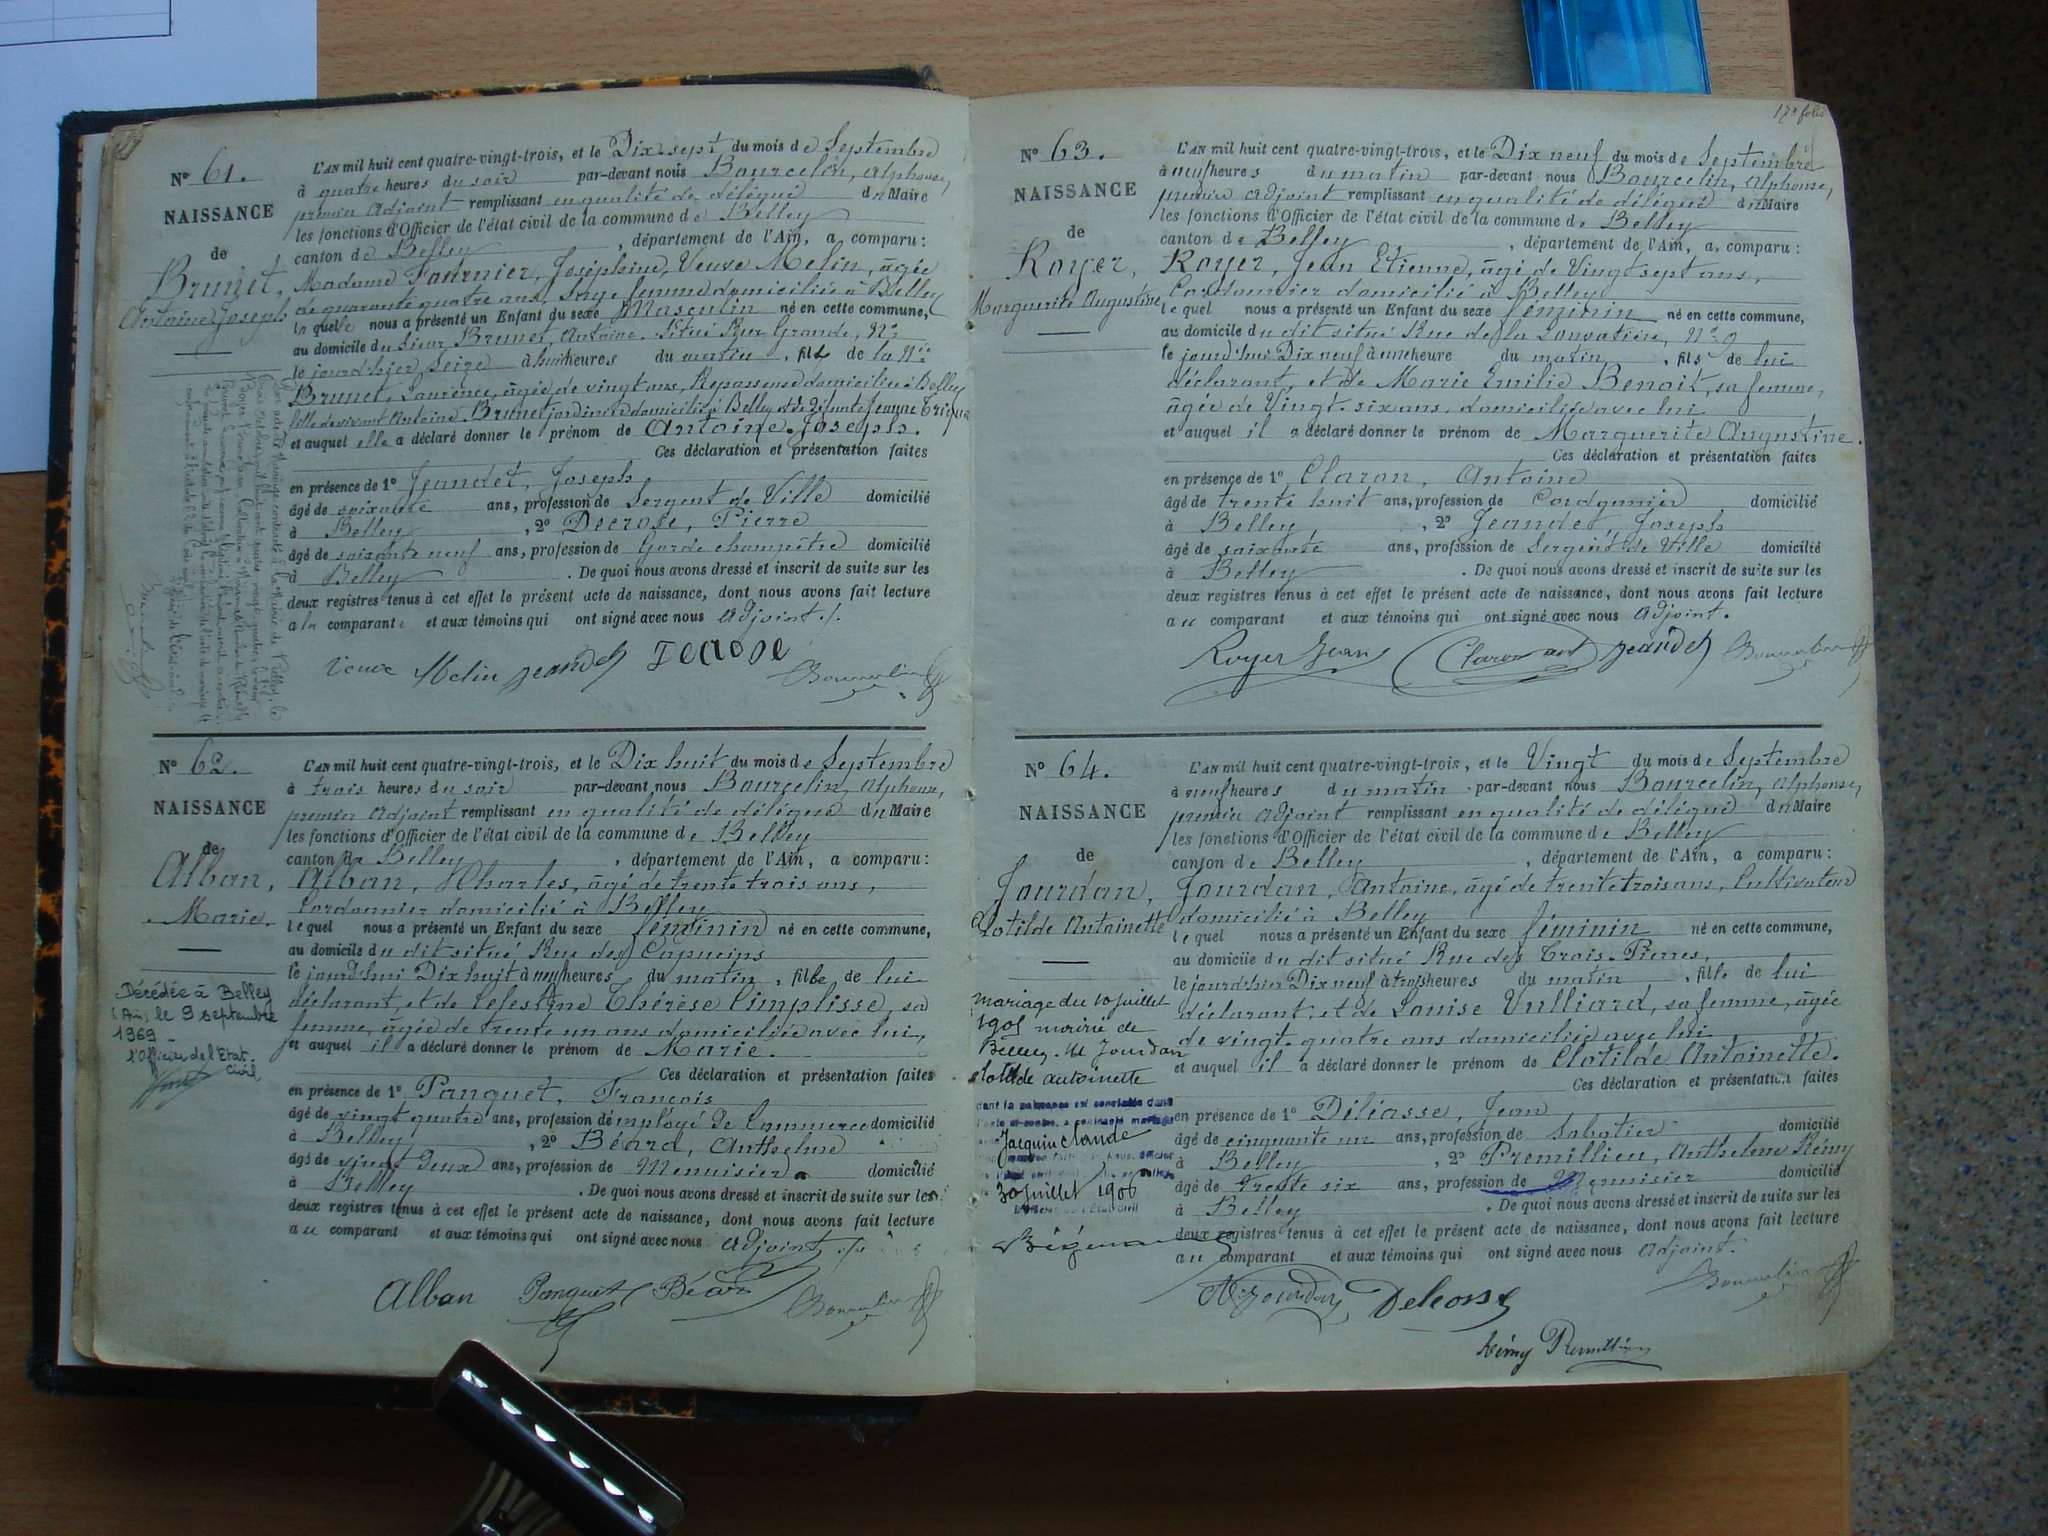 N° 61.
NAISSANCE
de
Brunet,
Antoine Joseph
L'AN mil huit cent quatre-vingt-trois, et le Dix sept du mois de Septembre
à quatre heures du soir par-devant nous Bourcelin, Alphonse,
premier Adjoint remplissant en qualité de délégué du Maire
les fonctions d'Officier de l'état civil de la commune de Belley
canton de Belley, département de l'Ain, a comparu:
Madame Fournier, Joséphine, Veuve Melin, âgée
de quarante quatre ans, Sage femme domiciliée à Belley
laquelle nous a présenté un Enfant du sexe Masculin né en cette commune,
au domicile du Sieur Brunet, Antoine. Situé Rue Grande, N°
le jourd'hier Seize à huit heures du matin, fils de la
Brunet, Laurence, âgée de vingt ans, Repasseuse domiciliée à Belley
fille de vivant Antoine Brunet jardinier domicilié à Belley et de défunte Jeanne
et auquel elle a déclaré donner le prénom de Antoine Joseph.
Ces déclaration et présentation faites
en présence de 1° Jeandet, Joseph
âgé de soixante ans, profession de Sergent de Ville domicilié
à Belley, 2° Decrose, Pierre
âgé de soixante neuf ans, profession de Garde champêtre domicilié
à Belley. De quoi nous avons dressé et inscrit de suite sur les
deux registres tenus à cet effet le présent acte de naissance, dont nous avons fait lecture
a la comparante et aux témoins qui ont signé avec nous Adjoint ./.
Veuve Melin Jeandet
N° 62.
NAISSANCE
de
Alban,
Marie.
Décédée à Belley
(Ain) le 9 septembre
1969
l'Officier de l'Etat-
Civil,
L'AN mil huit cent quatre-vingt-trois, et le Dix huit du mois de Septembre
à trois heures du soir par-devant nous Bourcelin, Alphonse,
premier Adjoint remplissant en qualité de délégué du Maire
les fonctions d'Officier de l'état civil de la commune de Belley
canton de Belley, département de l'Ain, a comparu:
Alban, Charles, âgé de trente trois ans,
Cordonnier domicilié à Belley
lequel nous a présenté un Enfant du sexe féminin né en cette commune,
au domicile du dit situé Rue des Capucins
le jourd'hui Dix huit à neuf heures du matin, fille de lui
déclarant, et de Celestine Thérèse Cimplisse, sa
femme, âgée de trente un ans domiciliée avec lui,
et auquel il a déclaré donner le prénom de Marie.
Ces déclaration et présentation faites
en présence de 1° Panquet, François
âgé de vingt quatre ans, profession de employé de Commerce domicilié
à Belley, 2° Béard, Anthelme
âgé de vingt deux ans, profession de Menuisier domicilié
à Belley. De quoi nous avons dressé et inscrit de suite sur les
deux registres tenus à cet effet le présent acte de naissance, dont nous avons fait lecture
au comparant et aux témoins qui ont signé avec nous Adjoint ./.
Alban Panquet Béard
17e folio
N° 63.
NAISSANCE
de
Royer,
Marguerite Augustine
L'AN mil huit cent quatre-vingt-trois, et le Dix neuf du mois de Septembre
à neuf heures du matin par-devant nous Bourcelin, Alphonse,
premier Adjoint remplissant en qualité de délégué du Maire
les fonctions d'Officier de l'état civil de la commune de Belley
canton de Belley, département de l'Ain, a comparu:
Royer, Jean Etienne, âgé de Vingt sept ans,
Cordonnier domicilié à Belley
lequel nous a présenté un Enfant du sexe féminin né en cette commune,
au domicile du dit situé Rue de la N° 9
le jourd'hui Dix neuf à une heure du matin, fils de lui
déclarant, et de Marie Emilie Benoit, sa femme,
âgée de Vingt-six ans, domiciliée avec lui
et auquel il a déclaré donner le prénom de Marguerite Augustine.
Ces déclaration et présentation faites
en présence de 1° Claron, Antoine
âgé de trente huit ans, profession de Cordonnier domicilié
à Belley, 2° Jeandet, Joseph
âgé de soixante ans, profession de Sergent de Ville domicilié
à Belley. De quoi nous avons dressé et inscrit de suite sur les
deux registres tenus à cet effet le présent acte de naissance, dont nous avons fait lecture
au comparant et aux témoins qui ont signé avec nous Adjoint.
Royer Jean Claron ant Jeandet
N° 64.
NAISSANCE
de
Jourdan,
Clotilde Antoinette
mariage du 10 juillet
mairie de
Belley. M Jourdan
Clotilde antoinette
dont la naissance est constatée dans
l'acte ci-contre, a contracté mariage
Jacquin Claude
30 juillet 1906
L'AN mil huit cent quatre-vingt-trois, et le Vingt du mois de Septembre
à neuf heures du matin par-devant nous Bourcelin, Alphonse,
premier Adjoint remplissant en qualité de délégué du Maire
les fonctions d'Officier de l'état civil de la commune de Belley
canton de Belley, département de l'Ain, a comparu:
Jourdan, Antoine, âgé de trente trois ans, Cultivateur
domicilié à Belley
lequel nous a présenté un Enfant du sexe féminin né en cette commune,
au domicile du dit situé Rue des Trois-Pierres,
le jourd'hier Dix neuf à trois heures du matin, fille de lui
déclarant, et de Louise Vulliard, sa femme, âgée
de vingt-quatre ans domiciliée avec lui
et auquel il a déclaré donner le prénom de Clotilde Antoinette.
Ces déclaration et présentation faites
en présence de 1° Déléasse, Jean
âgé de cinquante un ans, profession de Sabotier domicilié
à Belley, 2° Premillieu, Anthelme Rémy
âgé de trente six ans, profession de Menuisier domicilié
à Belley. De quoi nous avons dressé et inscrit de suite sur les
deux registres tenus à cet effet le présent acte de naissance, dont nous avons fait lecture
au comparant et aux témoins qui ont signé avec nous Adjoint.